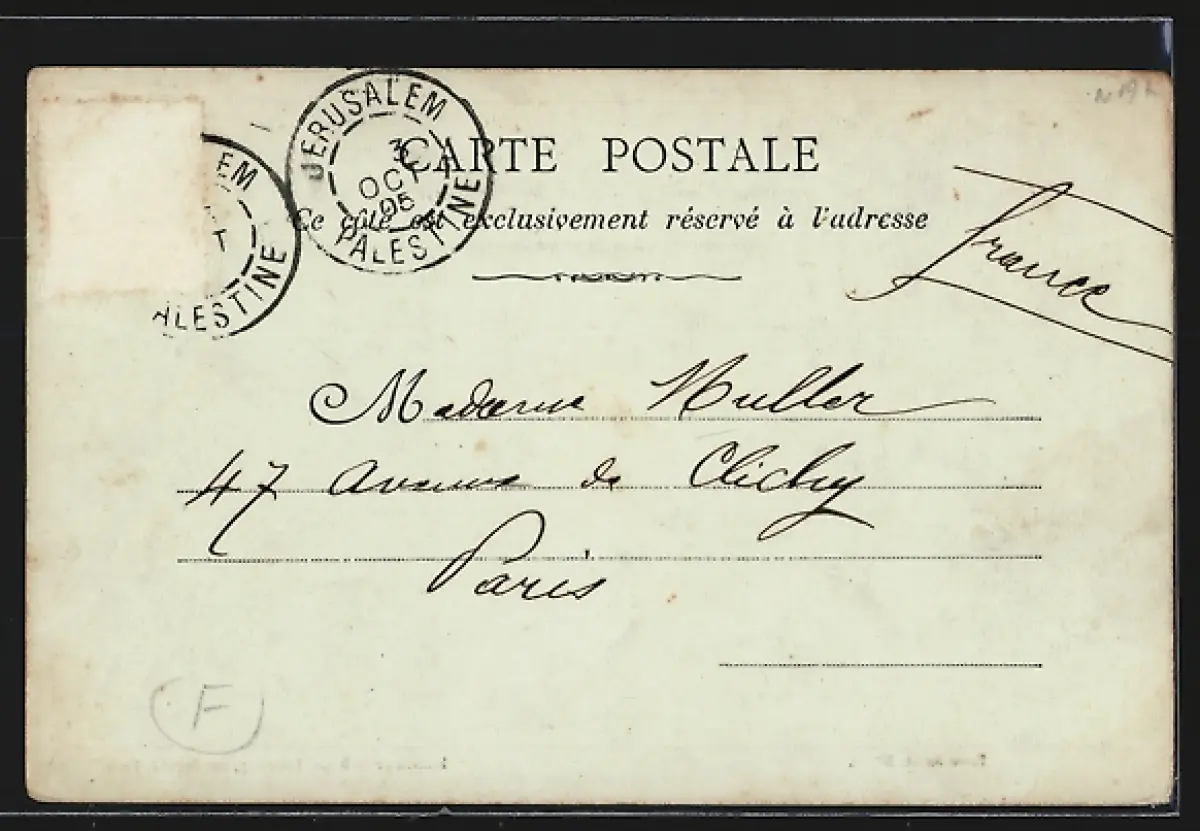 JERUSALEM
3
OCT
05
PALESTINE
EM
T
ALESTINE
CARTE POSTALE
Ce côté est exclusivement réservé à l'adresse
France
Madame Muller
47 Avenue de Clichy
Paris
F